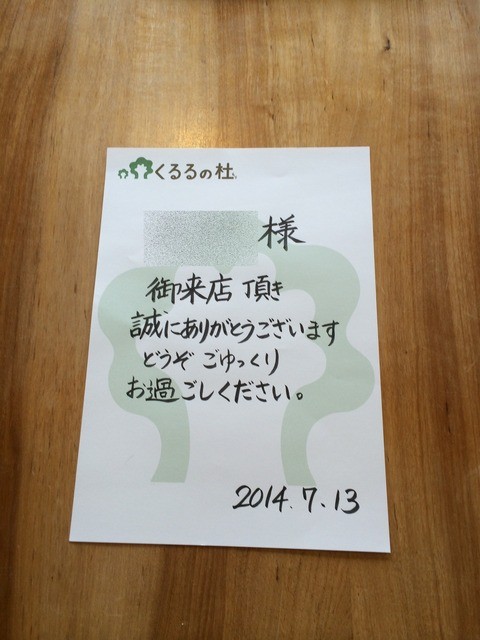 くるるの杜
様
御来店頂き
誠にありがとうございます
どうぞ ごゆっくり
お過ごしください。
2014.7.13